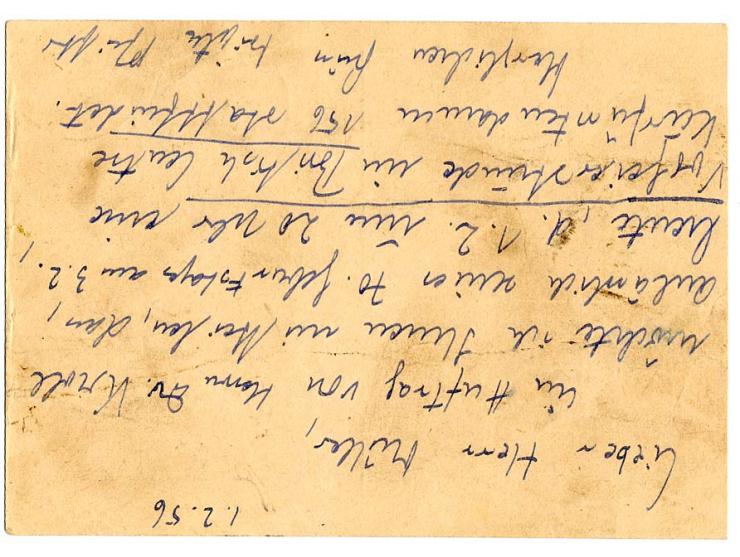 1.2.56
Lieber Herr Müller,
im Auftrag von Herrn Dr. Kroll
möchte ich Ihnen mitteilen, dass,
anläßlich seines 70. Geburtstags am 3.2.,
heute, d. 1.2. um 20 Uhr eine
Vorfeierstunde im British Centre
Kurfürstendamm 156 stattfindet.
Herzlichen